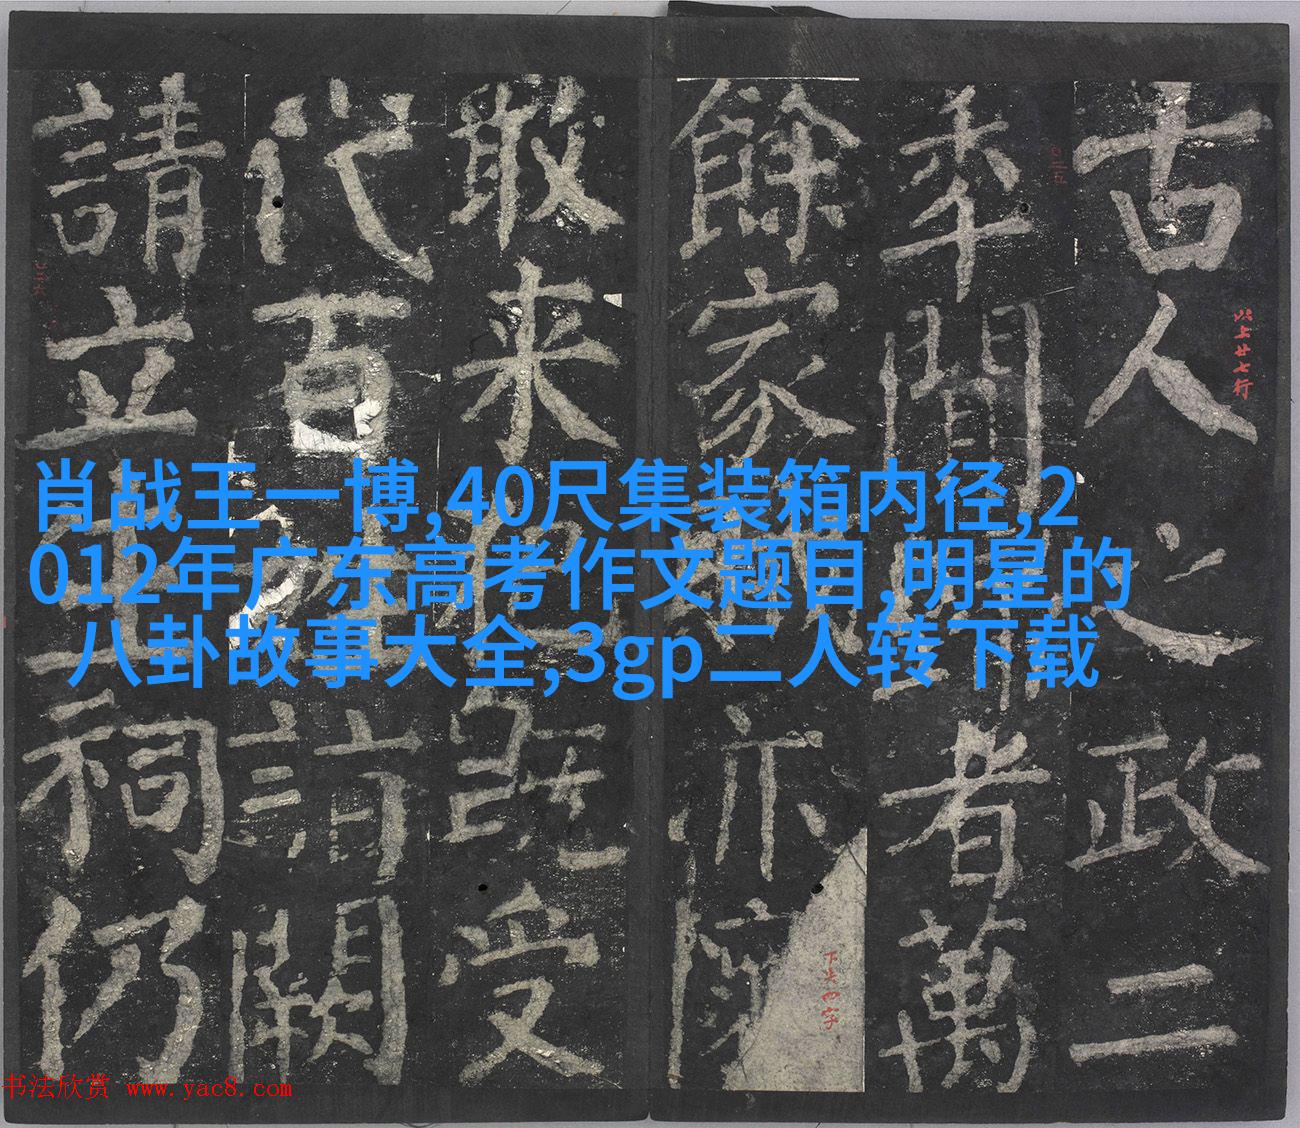 古人之政二
年間
者萬
餘家
亦隨
敢来
既受
代百
詣闕
請立生祠仍
以上廿七行
下失四字
肖战王一博,40尺集装箱内径,2
012年广东高考作文题目,明星的
八卦故事大全,3gp二人转下载
书法欣赏 www.yac8.com